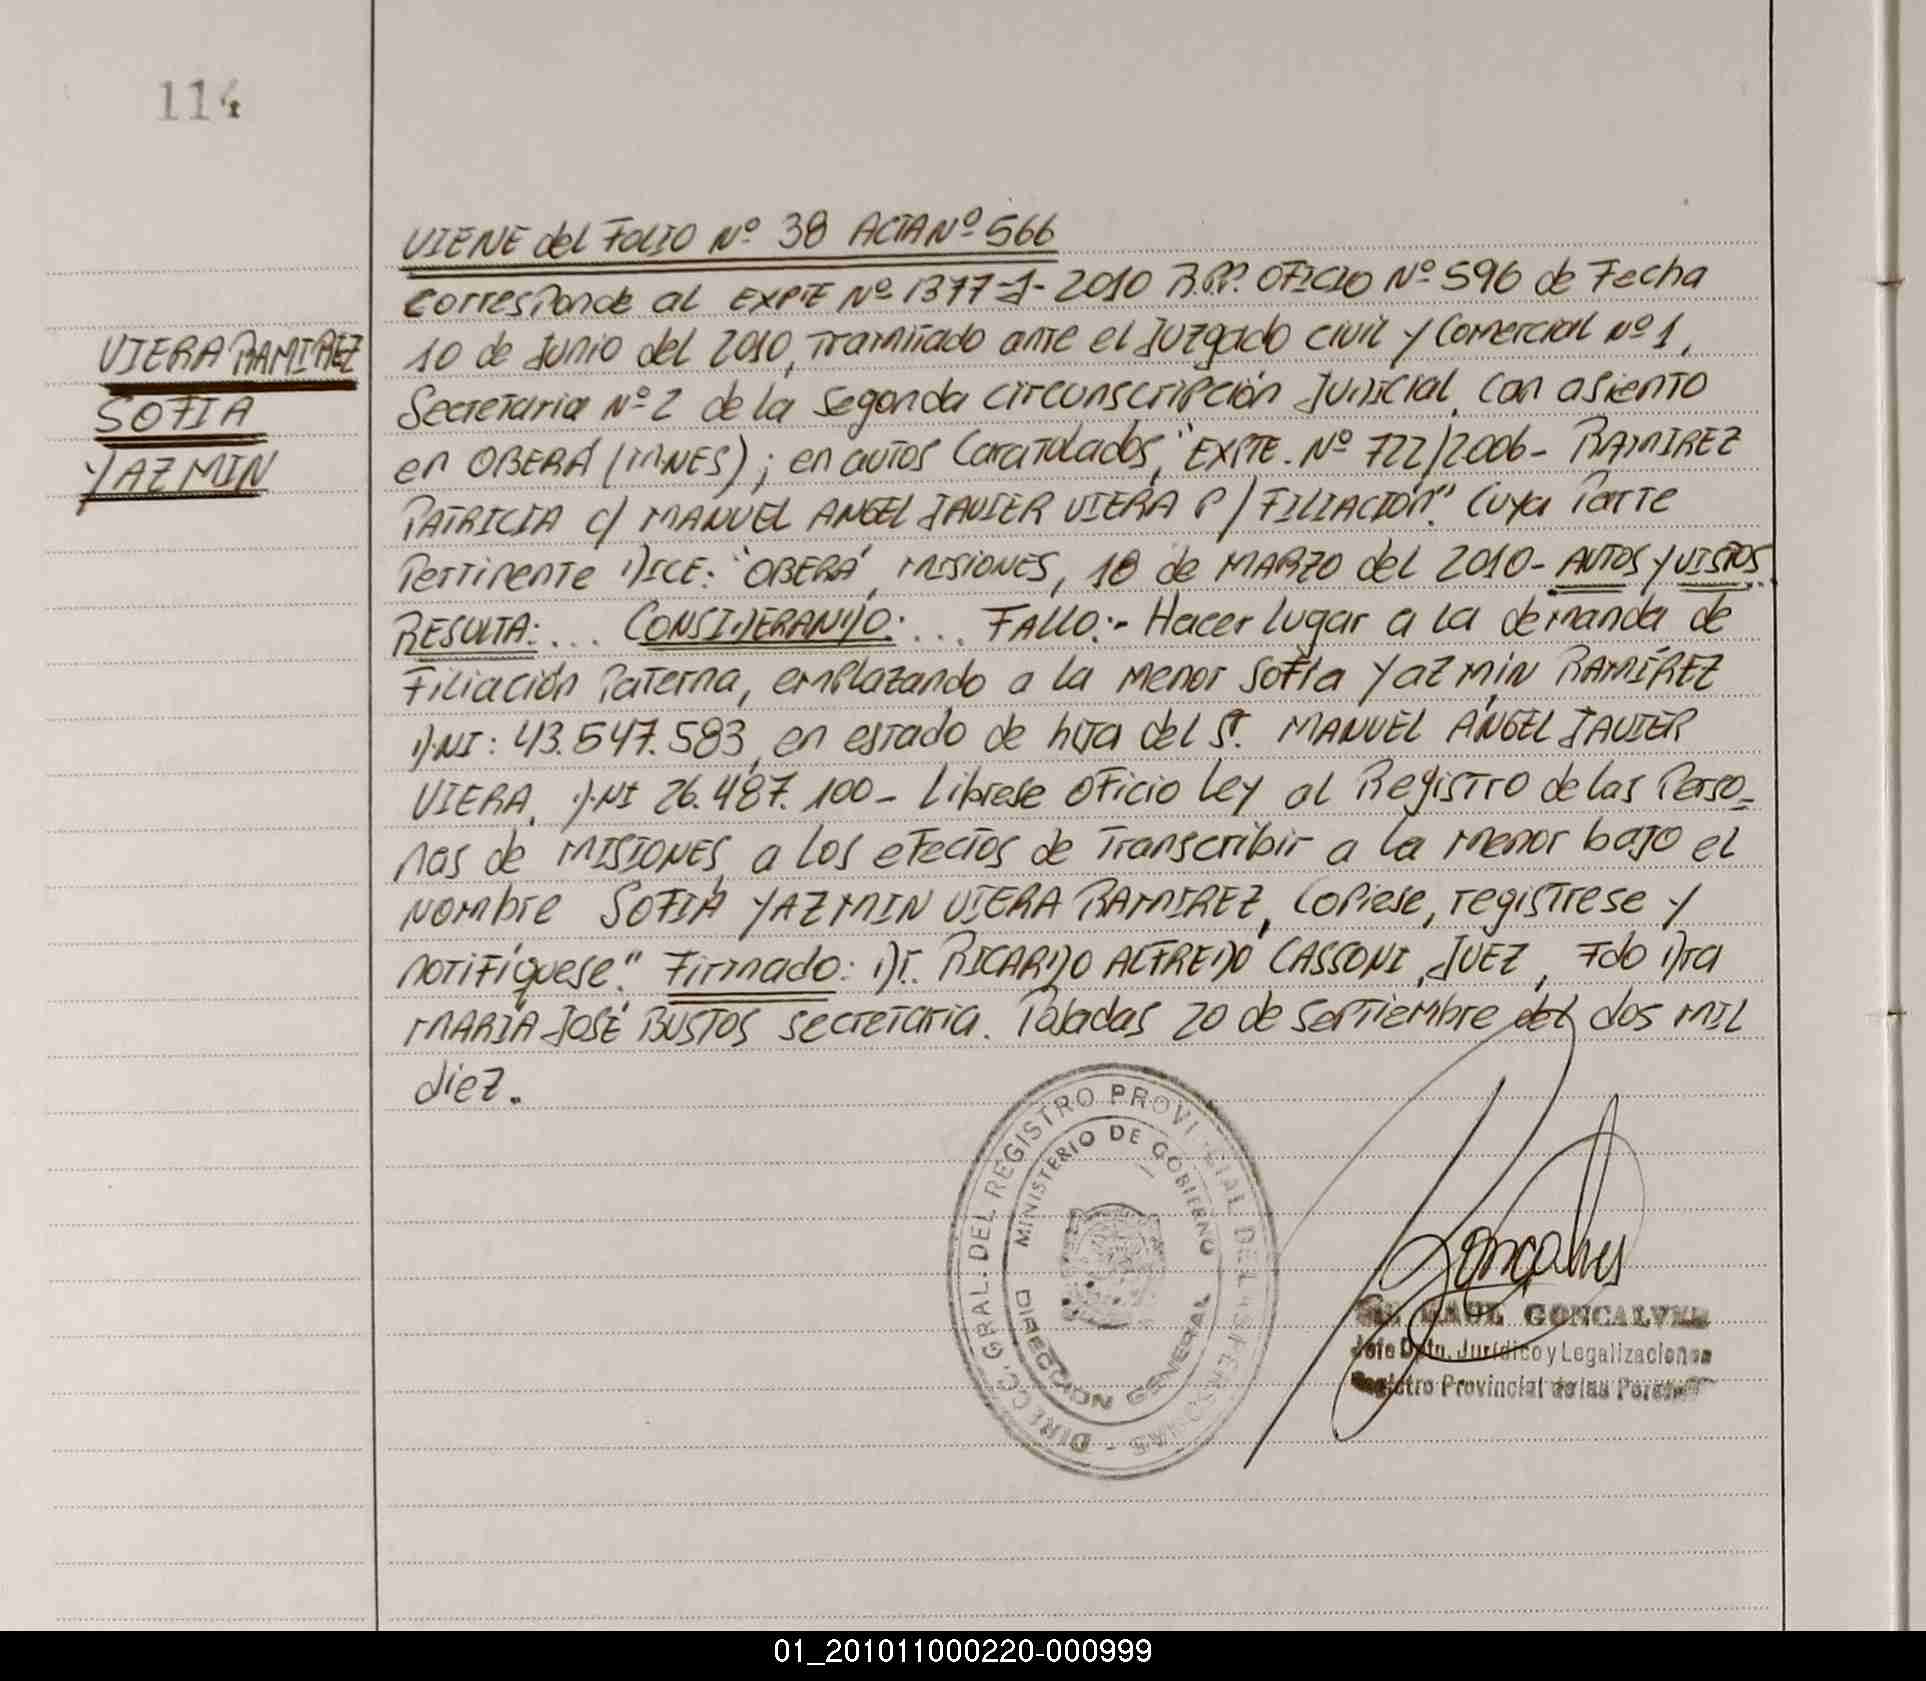 114
VIENE del FOLIO Nº 38 ACTA Nº 566
Corresponde al EXPTE Nº 1377-J-2010 R.P.P. OFICIO Nº 596 de Fecha
10 de Junio del 2010, Tramitado ante el Juzgado Civil y Comercial Nº 1,
Secretaria Nº 2 de la Segonda circunscripción Judicial, con asiento
en OBERÁ (MNES); en autos Caratulados, "EXPTE. Nº 722/2006- RAMIREZ
PATRICIA c/ MANUEL ANGEL JAVIER VIERA P/ FILIACIÓN". Cuya Parte
Pertinente DICE: "OBERÁ, MISIONES, 18 de MARZO del 2010- AUTOS y VISTOS:
RESULTA: ... CONSIDERANDO: ... FALLO:- Hacer lugar a la demanda de
Filiación Paterna, emplazando a la menor Sofía Yazmín RAMÍREZ
DNI: 43.547.583, en estado de hija del Sr. MANUEL ÁNGEL JAVIER
VIERA, DNI 26.487.100- Librese oficio Ley al Registro de las Perso-
nas de MISIONES, a los efectos de Transcribir a la menor bajo el
Nombre SOFÍA YAZMIN VIERA RAMIREZ, Copiese, registrese y
notifíquese". Firmado: Dr. RICARDO ALFREDO CASSONI, JUEZ, Fdo Dra
MARÍA JOSÉ BUSTOS secretaria. Posadas 20 de Septiembre del dos MIL
diez.
VIERA RAMIREZ
SOFIA
YAZMIN
DIREC. GRAL. DEL REGISTRO PROVINCIAL DE LAS PERSONAS -
MINISTERIO DE GOBIERNO
DIRECCION GENERAL
Gonçalves
RAUL GONCALVES
Jefe Dpto. Jurídico y Legalizaciones
Registro Provincial de las Personas
01_201011000220-000999